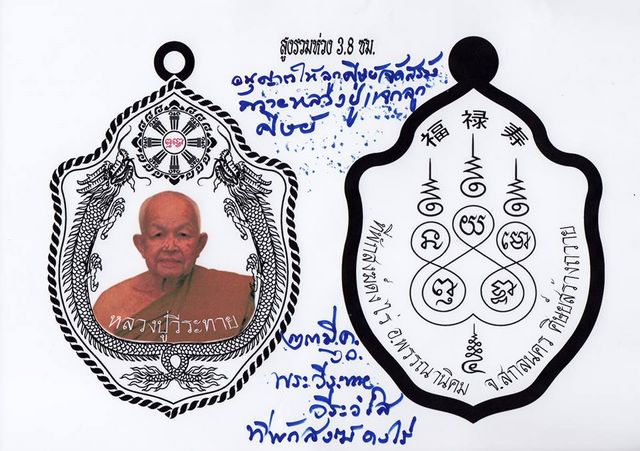 สูงรวมห่วง 3.8 ซม.
อนุญาตให้ลูกศิษย์จัดสร้าง
ถวายหลวงปู่แจกลูก
ศิษย์
หลวงปู่วีระทาย
福 祿 寿
ที่พักสงฆ์ดงไร่ อ.พรรณานิคม จ.สกลนคร ศิษย์สร้างถวาย
๒๓ มี.ค.
พระวีระทาย
ที่พักสงฆ์ดงไร่